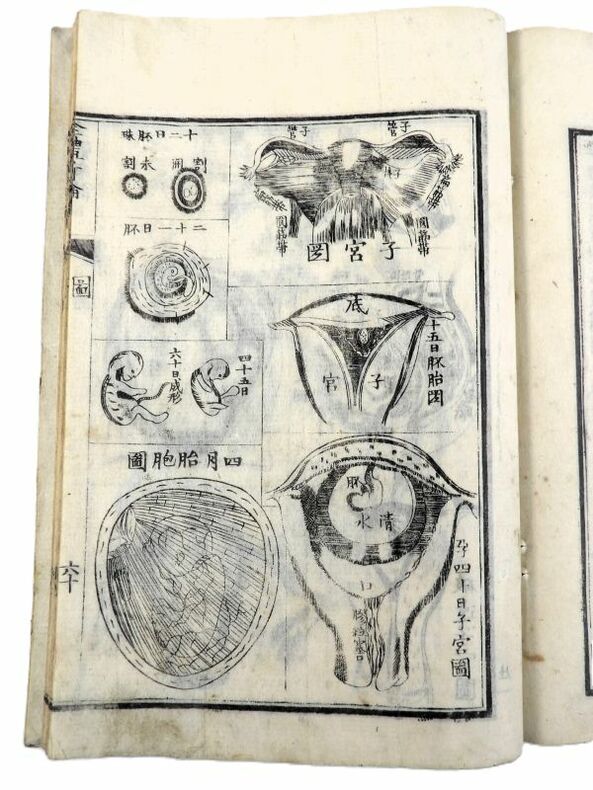 子管
子管
圓韌帶
圓韌帶
子宮圖
底
子宮
十五日胚胎圖
胚
清水
口
孕四十日子宮圖
十二日胚珠
割開
未割
二十一日胚
四十五日
六十日成形
四月胎胞圖
圖
六十